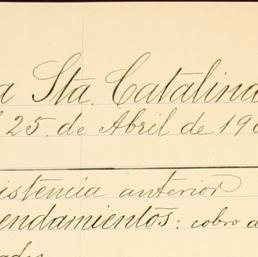 a Sta. Catalina
l 25. de Abril de 19
istencia anterior
endamientos: cobro a